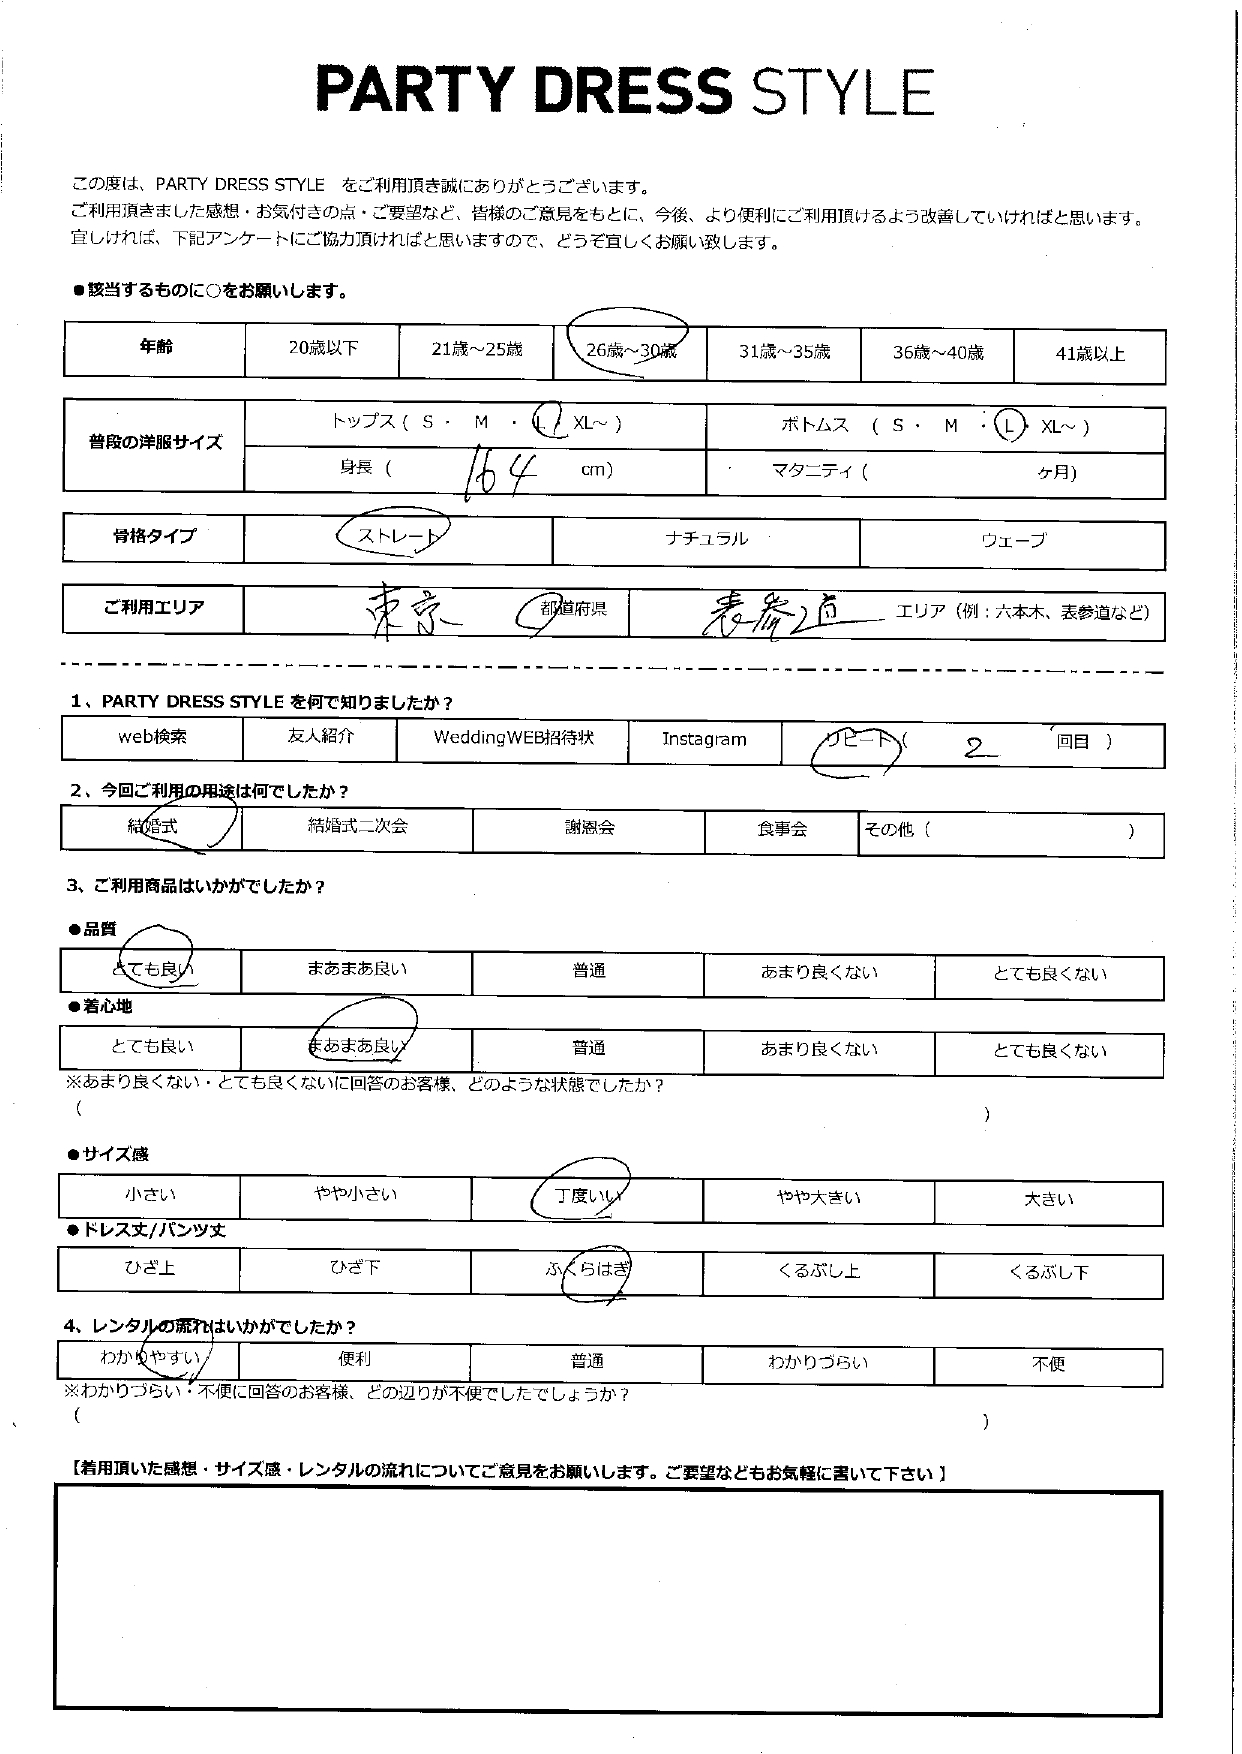 PARTY DRESS STYLE
この度は、PARTY DRESS STYLE をご利用頂き誠にありがとうございます。
ご利用頂きました感想・お気付きの点・ご要望など、皆様のご意見をもとに、今後、より便利にご利用頂けるよう改善していければと思います。
宜しければ、下記アンケートにご協力頂ければと思いますので、どうぞ宜しくお願い致します。
●該当するものに○をお願いします。
年齢 20歳以下 21歳～25歳 26歳～30歳 31歳～35歳 36歳～40歳 41歳以上
普段の洋服サイズ トップス ( S ・ M ・ L / XL～ ) ボトムス ( S ・ M ・ L ・ XL～ )
身長 ( 164 cm) マタニティ ( ヶ月)
骨格タイプ ストレート ナチュラル ウェーブ
ご利用エリア 東京 都道府県 表参道 エリア（例：六本木、表参道など）
1、PARTY DRESS STYLE を何で知りましたか？
web検索 友人紹介 WeddingWEB招待状 Instagram リピート ( 2 回目 )
2、今回ご利用の用途は何でしたか？
結婚式 結婚式二次会 謝恩会 食事会 その他 ( )
3、ご利用商品はいかがでしたか？
●品質
とても良い まあまあ良い 普通 あまり良くない とても良くない
●着心地
とても良い まあまあ良い 普通 あまり良くない とても良くない
※あまり良くない・とても良くないに回答のお客様、どのような状態でしたか？
( )
●サイズ感
小さい やや小さい 丁度いい やや大きい 大きい
●ドレス丈/パンツ丈
ひざ上 ひざ下 ふくらはぎ くるぶし上 くるぶし下
4、レンタルの流れはいかがでしたか？
わかりやすい 便利 普通 わかりづらい 不便
※わかりづらい・不便に回答のお客様、どの辺りが不便でしたでしょうか？
( )
【着用頂いた感想・サイズ感・レンタルの流れについてご意見をお願いします。ご要望などもお気軽に書いて下さい 】